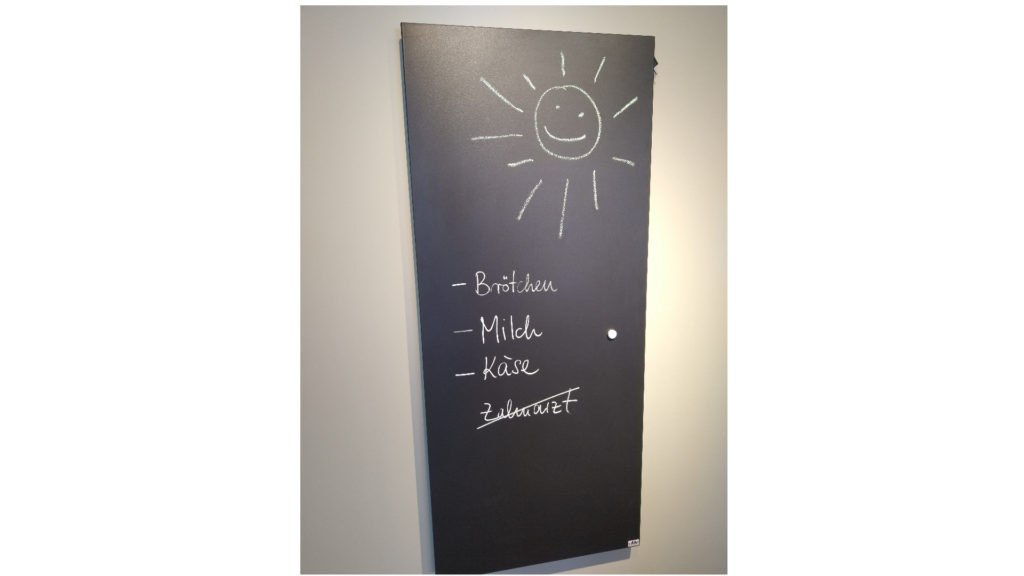 - Brötchen
- Milch
- Käse
Zahnarzt